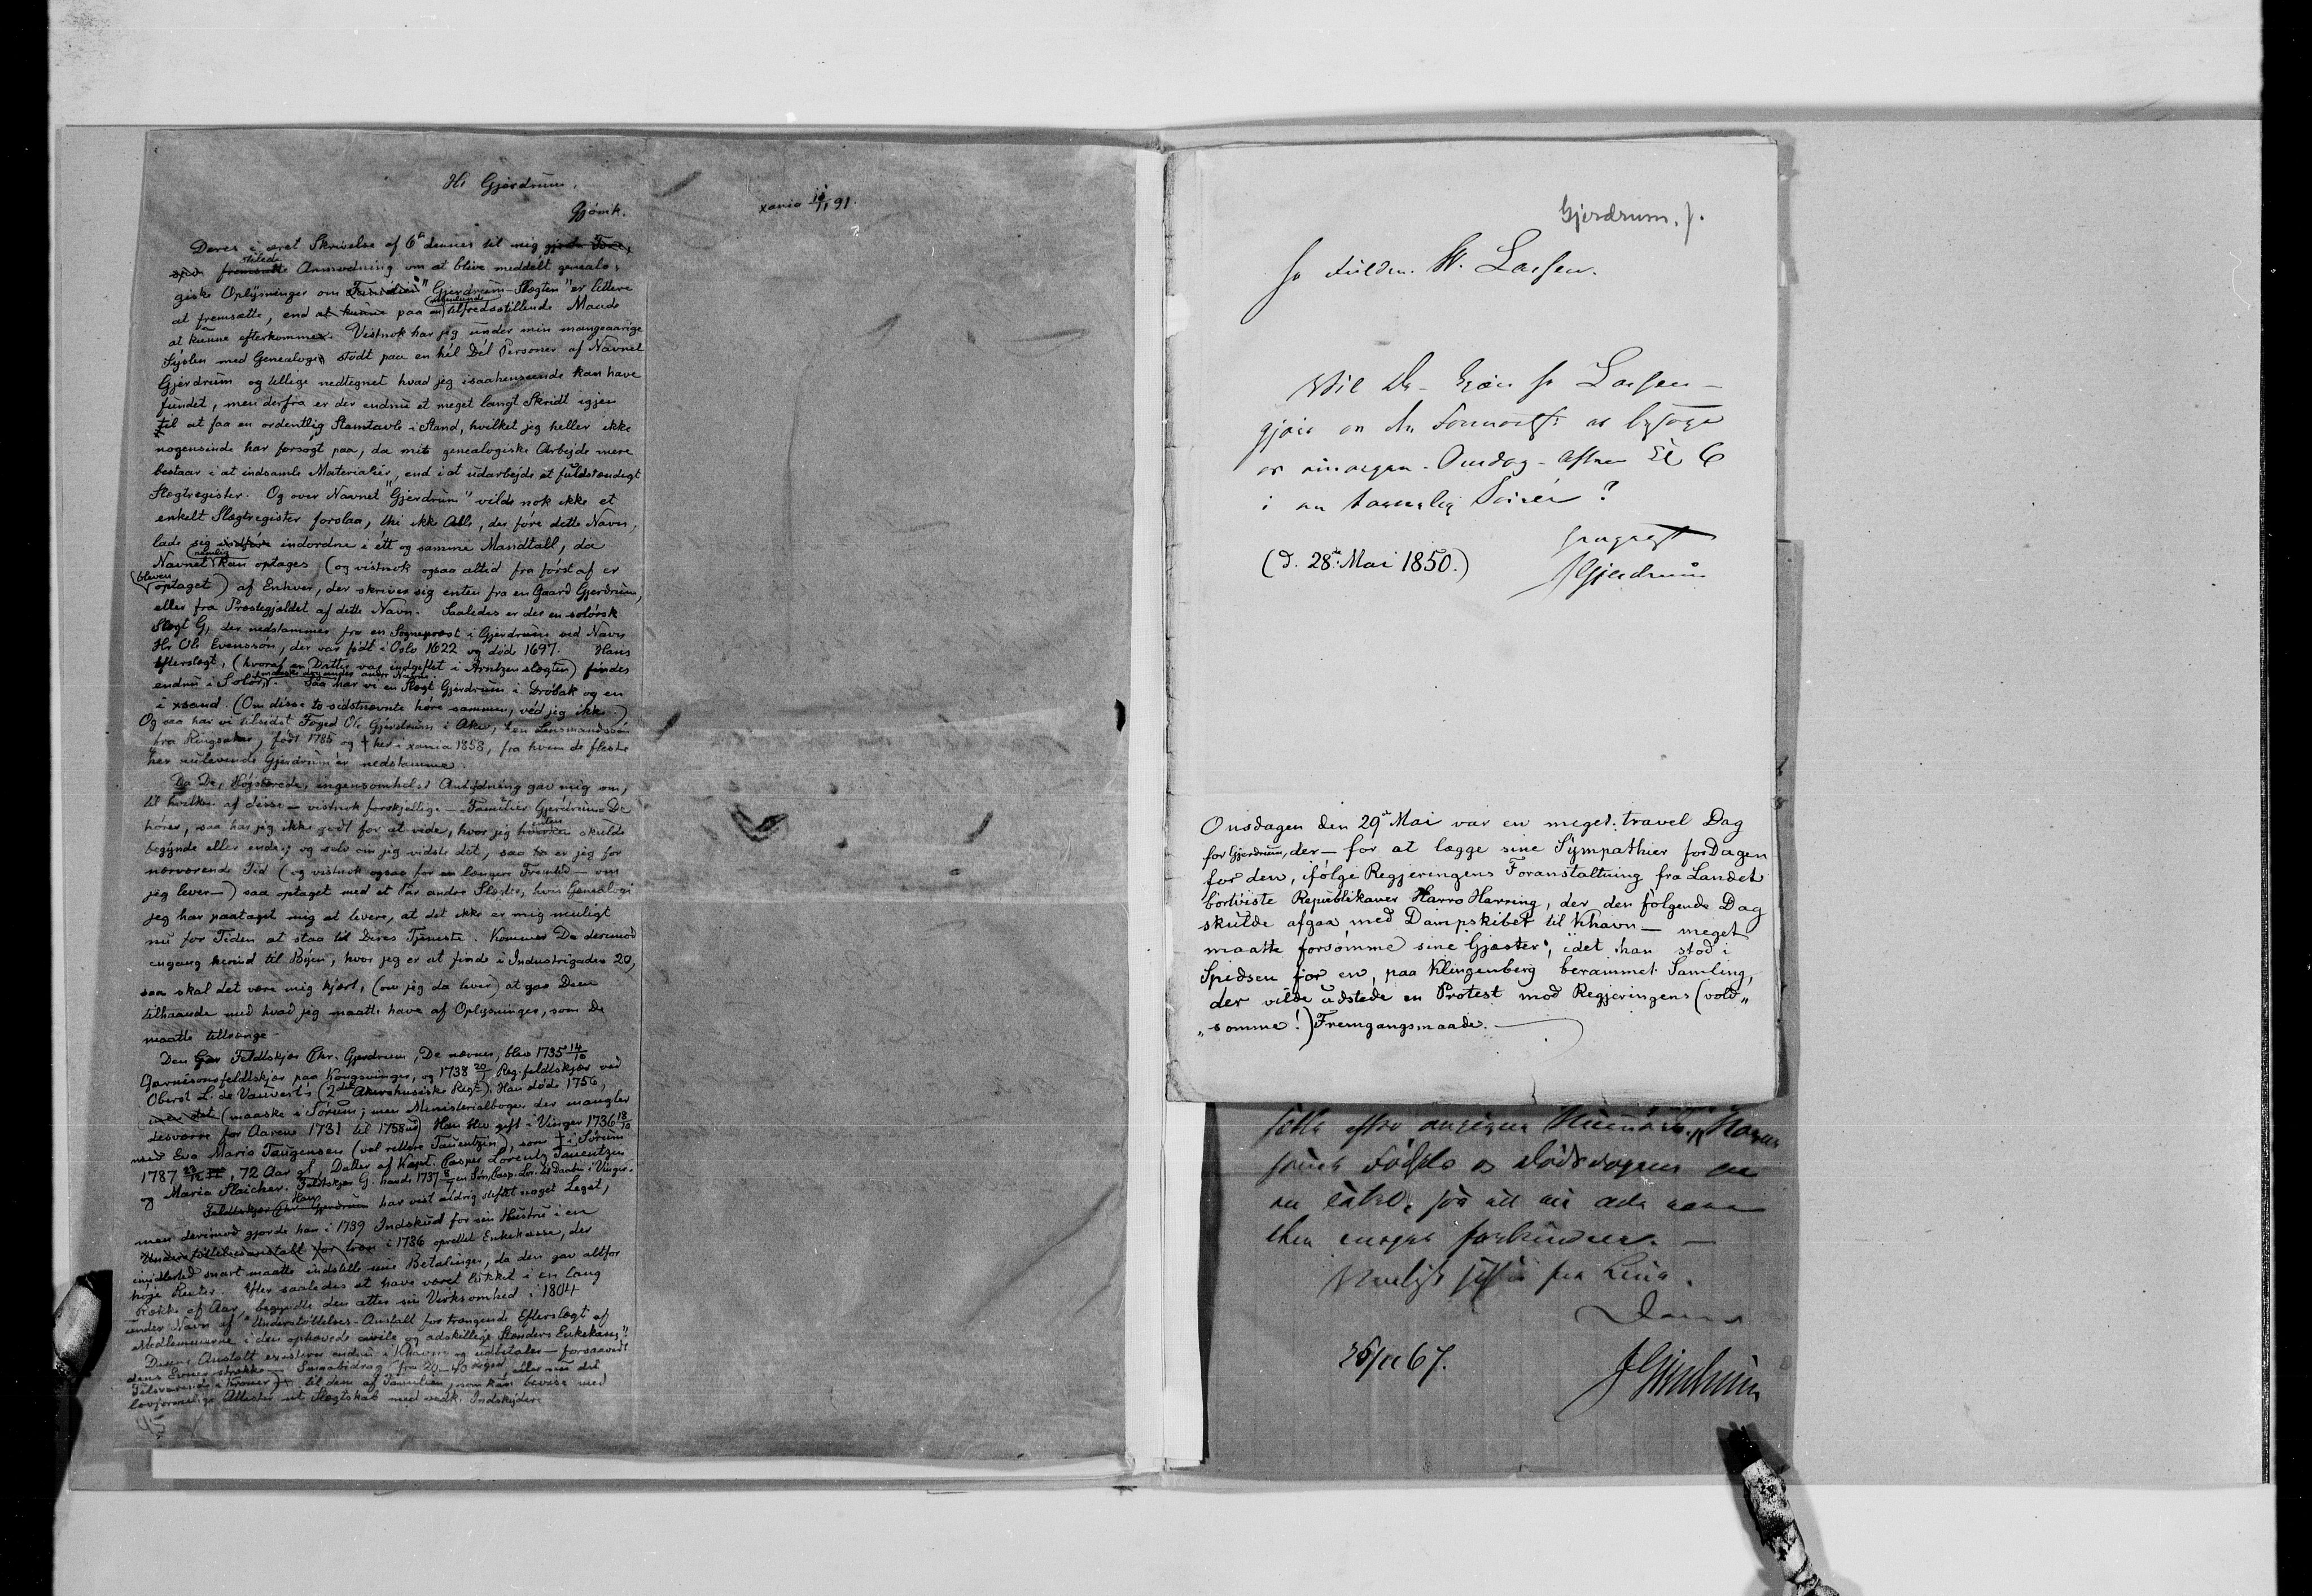 Hr Gjerdrum,
Gjøvik.
xania 10/11 91.
Deres i æret Skrivelse af 6te dennes til mig
stilede
fremsatte Anmodning om at blive meddelt genealo-
giske Oplysninger om Familien "Gjerdrum-Slægten" er lettere
at fremsætte, end at kunne paa en nogenlunde tilfredsstillende Maade
at kunne efterkomme. Vistnok har jeg under min mangeaarige
Syslen med Genealogi stødt paa en hel Del Personer af Navnet
Gjerdrum og tillige nedtegnet hvad jeg i saahenseende kan have
fundet, men derfra er der endnu et meget langt Skridt igjen
til at faa en ordentlig Stamtavle i Stand, hvilket jeg heller ikke
nogensinde har forsøgt paa, da mit genealogiske Arbejde mere
bestaar i at indsamle Materialier, end i at udarbejde et fuldstændigt
Slægtregister. Og over Navnet "Gjerdrum" vilde nok ikke et
enkelt Slægtregister forslaa, thi ikke Alle, der føre dette Navn,
lade sig indføre indordne i ett og samme Mandtall, da
Navnet nemlig kan optages (og vistnok ogsaa altid fra først af er
bleven optaget) af Enhver, der skriver sig enten fra en Gaard Gjerdrum,
eller fra Præstegjældet af dette Navn. Saaledes er der en solørsk
Slægt G, der nedstammer fra en Sognepræst i Gjerdrum ved Navn
Hr Ole Evenssøn, der var født i Oslo 1622 og døde 1697. Hans
Efterslægt, (hvoraf en Datter var indgiftet i Arntzen slægten) findes
endnu i Solør, maaske dog under andre Navne. Saa har vi en Slægt Gjerdrum i Drøbak og en
i xsand. (Om disse to sidstnævnte høre sammen, véd jeg ikke.)
Og saa har vi tilsidst Foged Ole Gjerdrum i Aker, en Lensmandssøn
fra Ringsaker, født 1785 og † her i xania 1858, fra hvem de fleste
her nulevende Gjerdrum'er nedstamme.
Da De, Højstærede, ingensomhelst Antydning gav mig om,
til hvilken af disse — vistnok forskjellige — Familier Gjerdrum De
hører, saa har jeg ikke godt for at vide, hvor jeg enten skulde
begynde eller ende; og selv om jeg vidste det, saa er jeg for
nærværende Tid (og vistnok ogsaa for en længere Fremtid — om
jeg lever —) saa optaget med et Par andre Slægter, hvis Genealogi
jeg har paataget mig at levere, at det ikke er mig muligt
nu for Tiden at staa til Deres Tjeneste. Kommer De derimod
engang herind til Byen, hvor jeg er at finde i Industrigaden 20,
saa skal det være mig kjært, (om jeg da lever) at gaa Dem
tilhaande med hvad jeg maatte have af Oplysninger, som De
maatte tiltrænge.
Den Gar Feldtskjær Chr. Gjerdrum, De nævner, blev 1735 14/10
Garnisonsfeldtskjær paa Kongsvinger, og 1738 20/1 Reg. feldtskjær ved
Oberst L. de Vauvert's (2det Akershusiske Regt). Han døde 1756,
men det (maaske i Sørum; men Ministerialbogen der mangler
desværre for Aarene 1731 til 1758) Han blev gift i Vinger 1736 18/10
med Eva Maria Taugensen (vel rettere Tauentzin), som † i Sørum
1787, 72 Aar gl, Datter af Kapt. Casper Lorentz Tauentzin
og Maria Slaicher. Feldtskjær G. havde 1737 8/7 en Søn, Casp. Lor. til Daaben i Vinger.
Feldtskjær Chr Gjerdrum Han har vist aldrig stiftet noget Legat,
men derimod gjorde han i 1739 Indskud for sin Hustru i en
Understøttelsesanstalt for i 1736 oprettet Enkekasse, der
imidlertid snart maatte indstille sine Betalinger, da den gav altfor
høje Renter. Efter saaledes at have været lukket i en lang
Række af Aar, begyndte den atter sin Virksomhed i 1804
under Navn af "Understøttelses-Anstalt for trængende Efterslægt af
Medlemmerne i den ophævede civile og adskillige Stænders Enkekasse".
Denne Anstalt existerer endnu i Khavn og udbetaler — forsaavidt
dens Evner strække — Smaabidrag (fra 20–40 eller nu det
Tilsvarende i Kroner) til dem af Familien, som kan bevise med
lovformelige Attester sit Slægtskab med vedk. Indskyder.
Gjerdrum, J.
Hr Fuldm. W. Larsen.
Vil De – kjære Hr Larsen –
gjøre en den Fornøielse at besøge
os imorgen – Onsdag – Aften Kl 6
i en Soirée?
(d. 28de Mai 1850.)
JGjerdrum
Onsdagen den 29de Mai var en meget travel Dag
for Gjerdrum, der — for at lægge sine Sympathier for Dagen
for den, ifølge Regjeringens Foranstaltning fra Landet
bortviste Republikaner Harro Harring, der den følgende Dag
skulde afgaa med Dampskibet til Khavn — meget
maatte forsømme sine Gjæster, idet han stod i
Spidsen for en, paa Klingenberg berammet Samling,
der vilde udstede en Protest mod Regjeringens (vold„
„somme!) Fremgangsmaade.
Fødsels og Dødsdagen
fra Lina.
Deres
26/11 67.
JGjerdrum